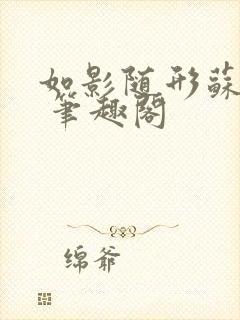 如影随形蘇
笔趣阁
绵爷